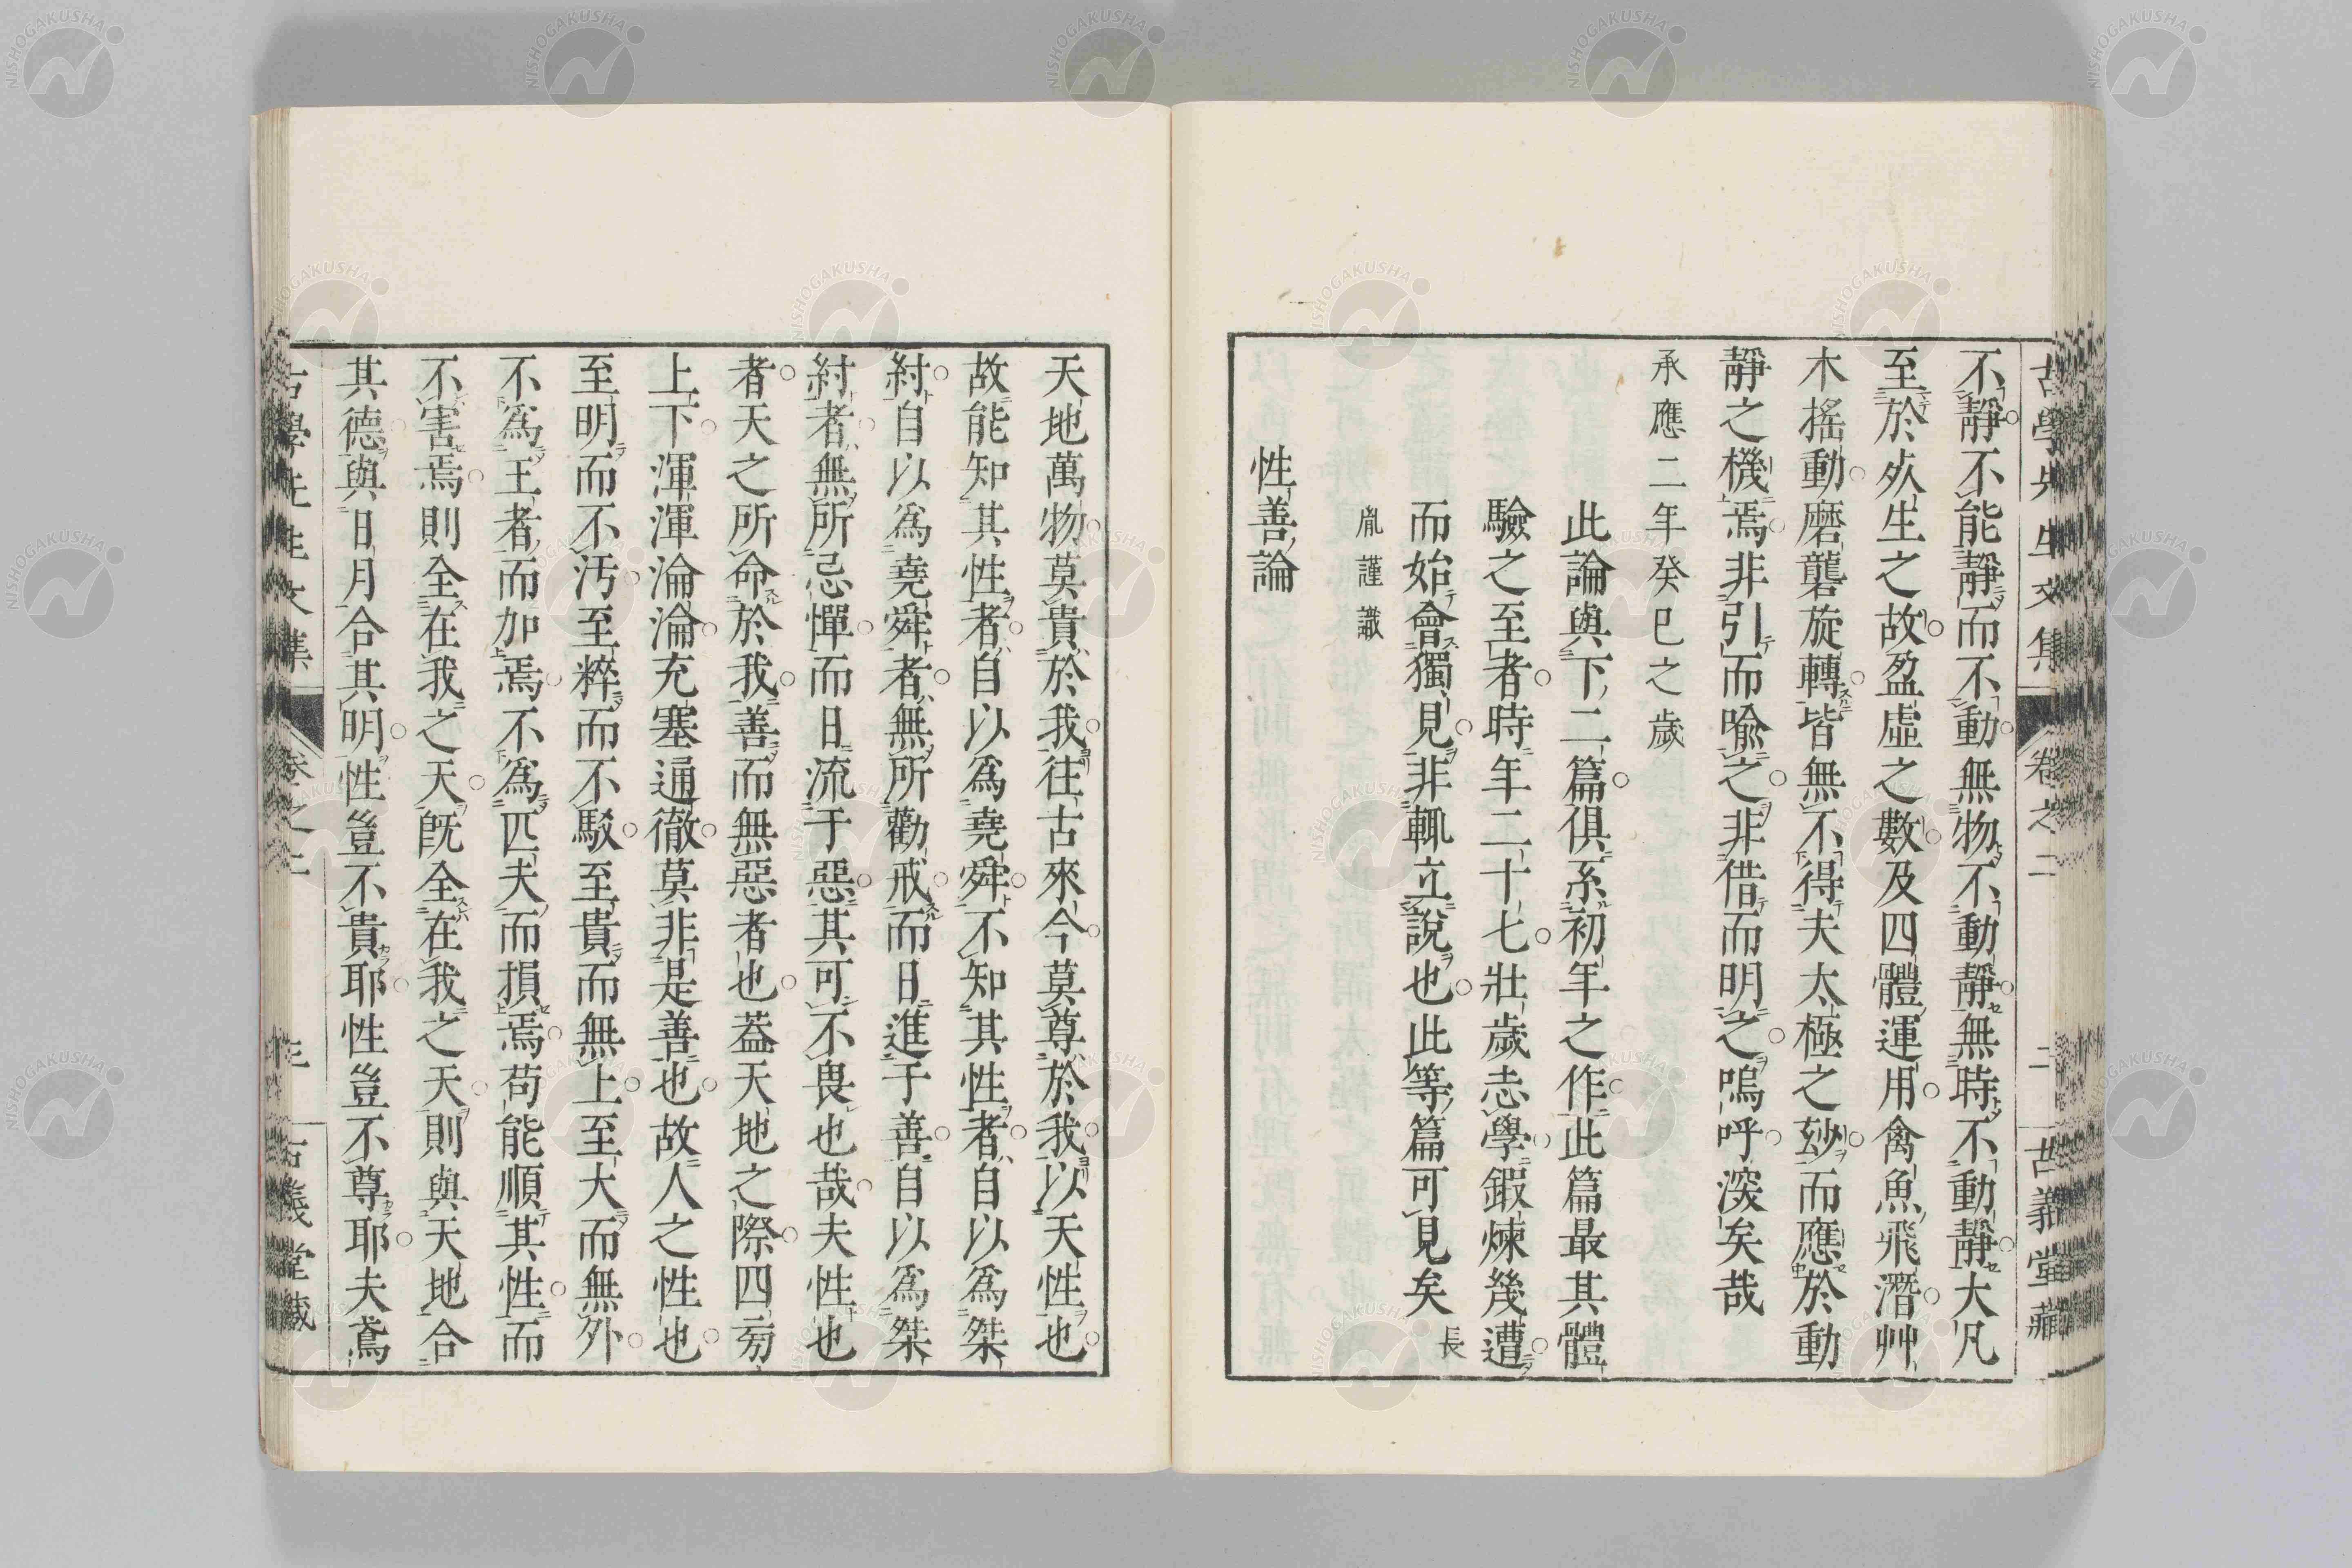 古學先生文集 卷之二 二 古義堂藏
不靜不能靜而不動無物不動靜無時不動靜大凡
至於夊生之故盈虛之數及四體運用禽魚飛潛艸
木搖動磨礱旋轉皆無不得夫太極之玅而應於動
靜之機焉非引而喩之非借而明之嗚呼深矣哉
承應二年癸巳之歲
此論與下二篇俱系初年之作此篇最其體
驗之至者時年二十七壯歲志學鍜煉幾遭
而始會獨見非輒立說也此等篇可見矣 長
胤謹識
性善論
天地萬物莫貴於我往古來今莫尊於我以天性也
故能知其性者自以爲堯舜不知其性者自以爲桀
紂自以爲堯舜者無所勸戒而日進于善自以爲桀
紂者無所忌憚而日流于惡其可不畏也哉夫性也
者天之所命於我善而無惡者也葢天地之際四旁
上下渾渾淪淪充塞通徹莫非是善也故人之性也
至明而不汚至粹而不駁至貴而無上至大而無外
不爲王者而加焉不爲匹夫而損焉苟能順其性而
不害焉則全在我之天旣全在我之天則與天地合
其德與日月合其明性豈不貴耶性豈不尊耶夫鳶
古學先生文集 卷之二 古義堂藏
NISHOGAKUSHA